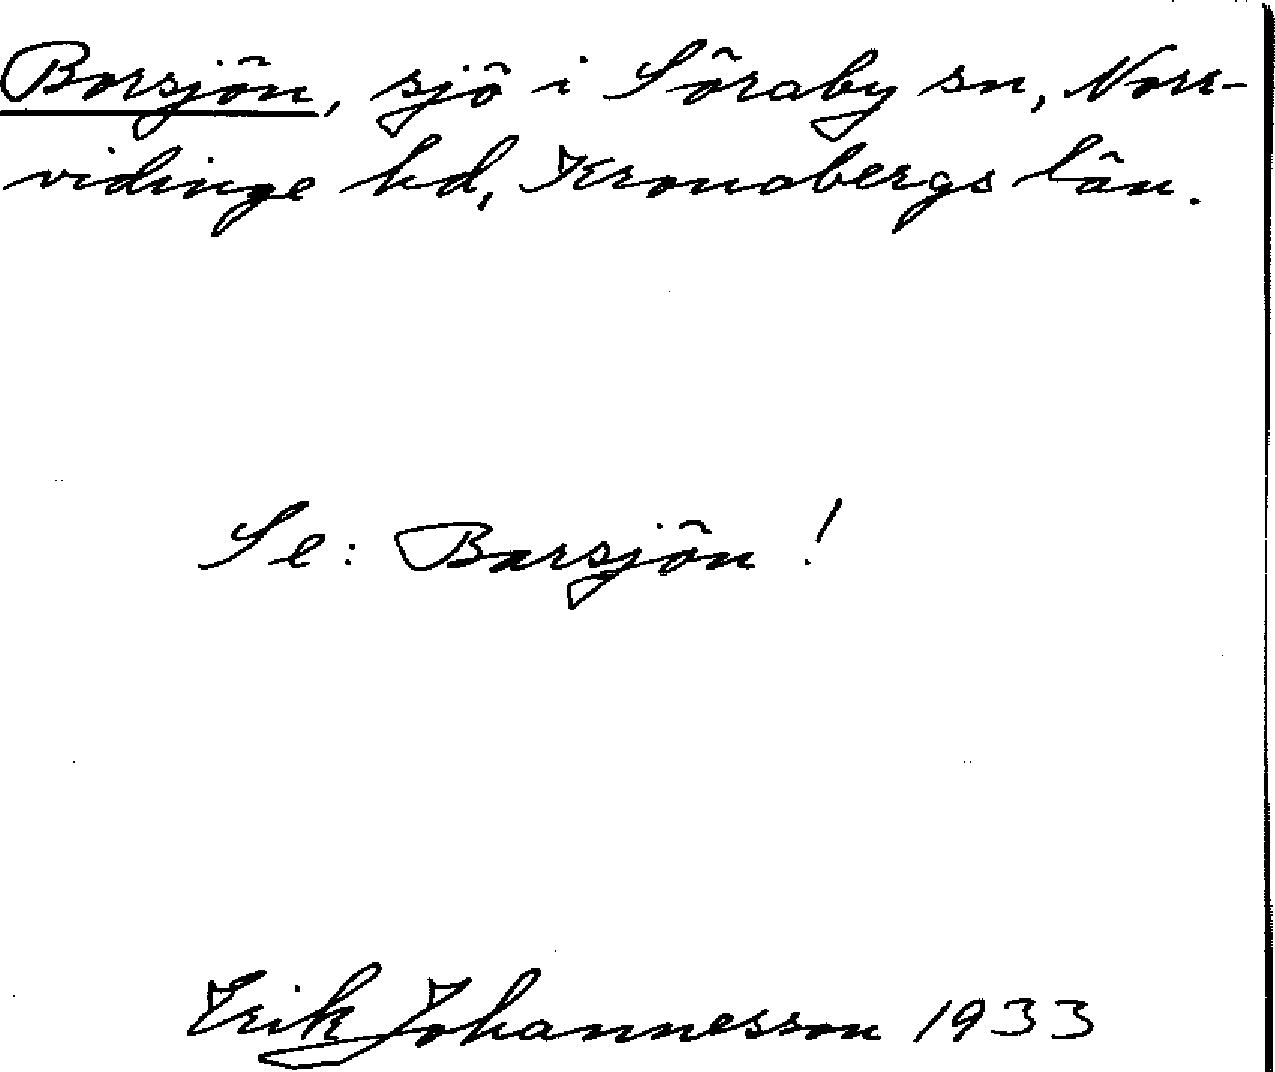 Borsjön, sjö i Söraby sn, Norr-
vidinge hd, Kronobergs län.
Se: Barsjön!
Erik Johannesson 1933